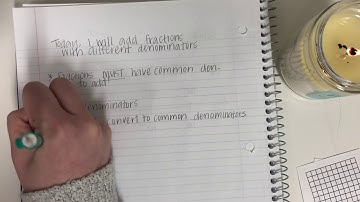 Today, I will add fractions
with different denominators
* Fractions MUST have common den-
to add
denominators
convert to common denominators